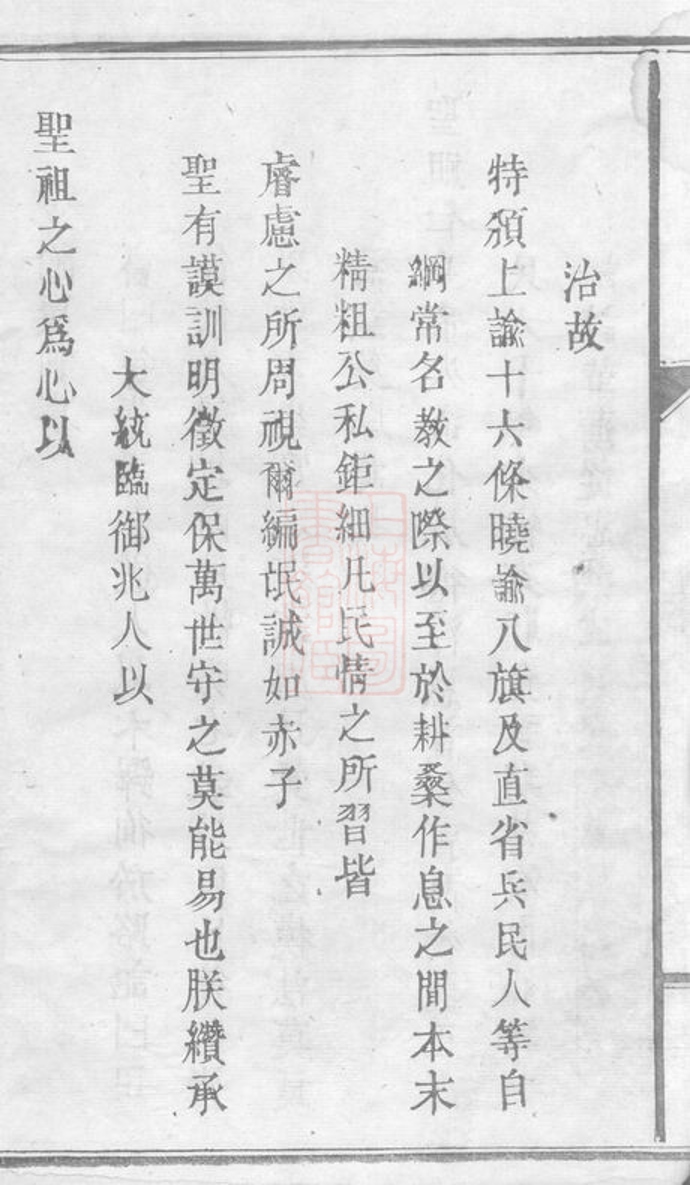 治故
特頒上諭十六條曉諭八旗及直省兵民人等自
綱常名教之際以至於耕桑作息之間本末
精粗公私鉅細凡民情之所習皆
睿慮之所周視爾編氓誠如赤子
聖有謨訓明徵定保萬世守之莫能易也朕纘承
大統臨御兆人以
聖祖之心爲心以